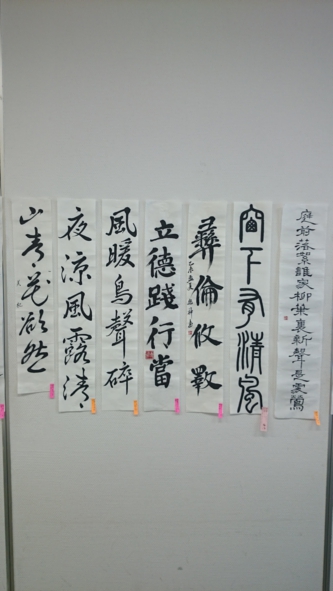 庭前落絮誰家柳葉裏新聲是處鶯
窗下有清風
彝倫攸斁
立德踐行當
風暖鳥聲碎
夜涼風露清
山青花欲然